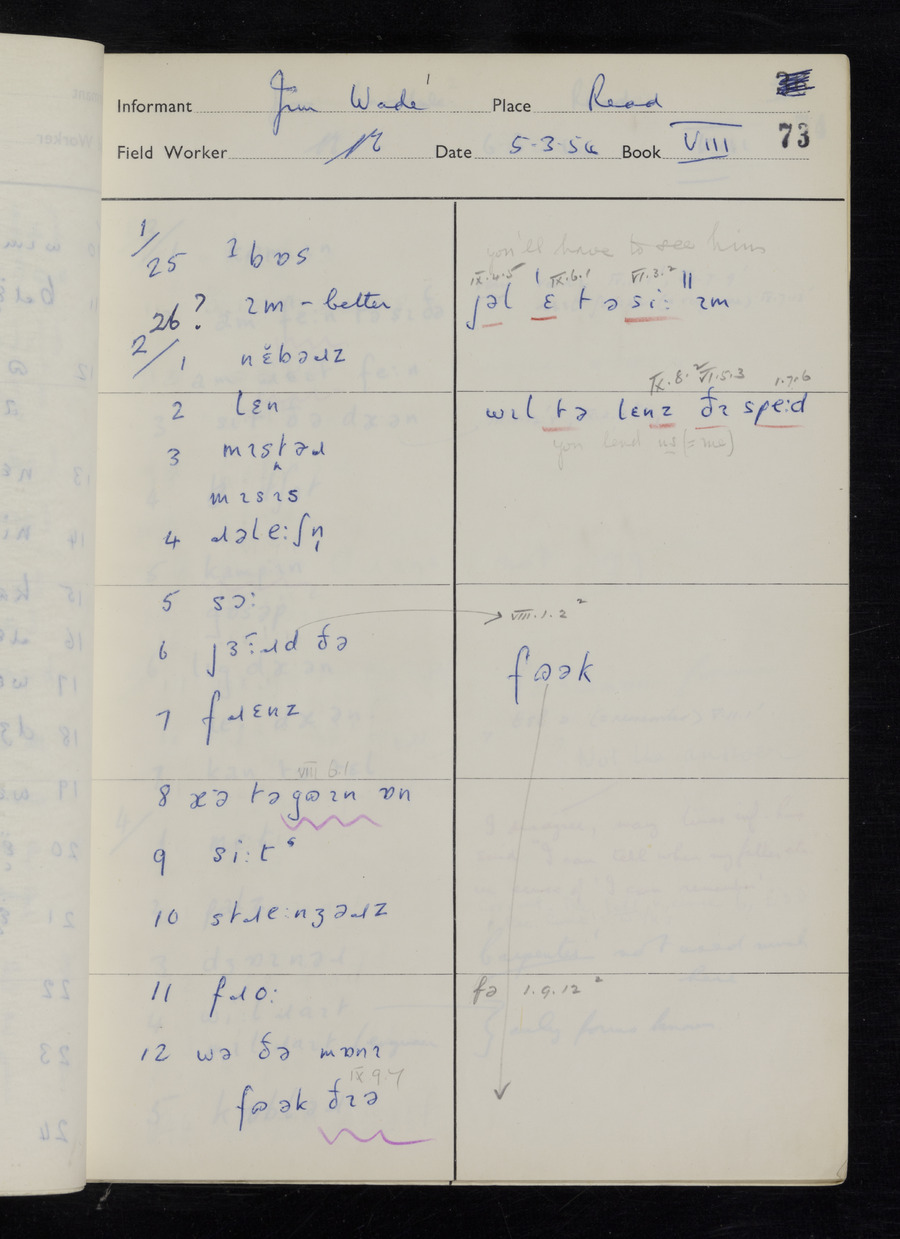 Informant Jim Wade Place Read
Field Worker Date 5-3-54 Book VIII 73
1/25 ʔbɒs
you'll have to see him
IX.4.5 IX.6.1 VI.3.2
26 ? ɪm - better
jəl ɛ t ə siː ɪm
2/1 nɛ̆bəɹz
IX.8.2 VI.5.3 1.7.6
2 lɛn
wɪl tə lɛnz ðɪ speːd
you lend us (= me)
3 mɪstəɹ
mɪsɪs
4 ɹəleːʃn̩
5 sɔː
VIII.1.2 ²
6 jɜːɹd ðə
fɷək
7 fɹɛnz
VIII 6.1
8 æə tə gɷɪn ɒn
9 siːtˢ
10 stɹeːnʒəɹz
11 fɹoː
fə 1.9.12 ²
12 wə ðə mɒnɪ
IX 9.4
fɷək ðɪə